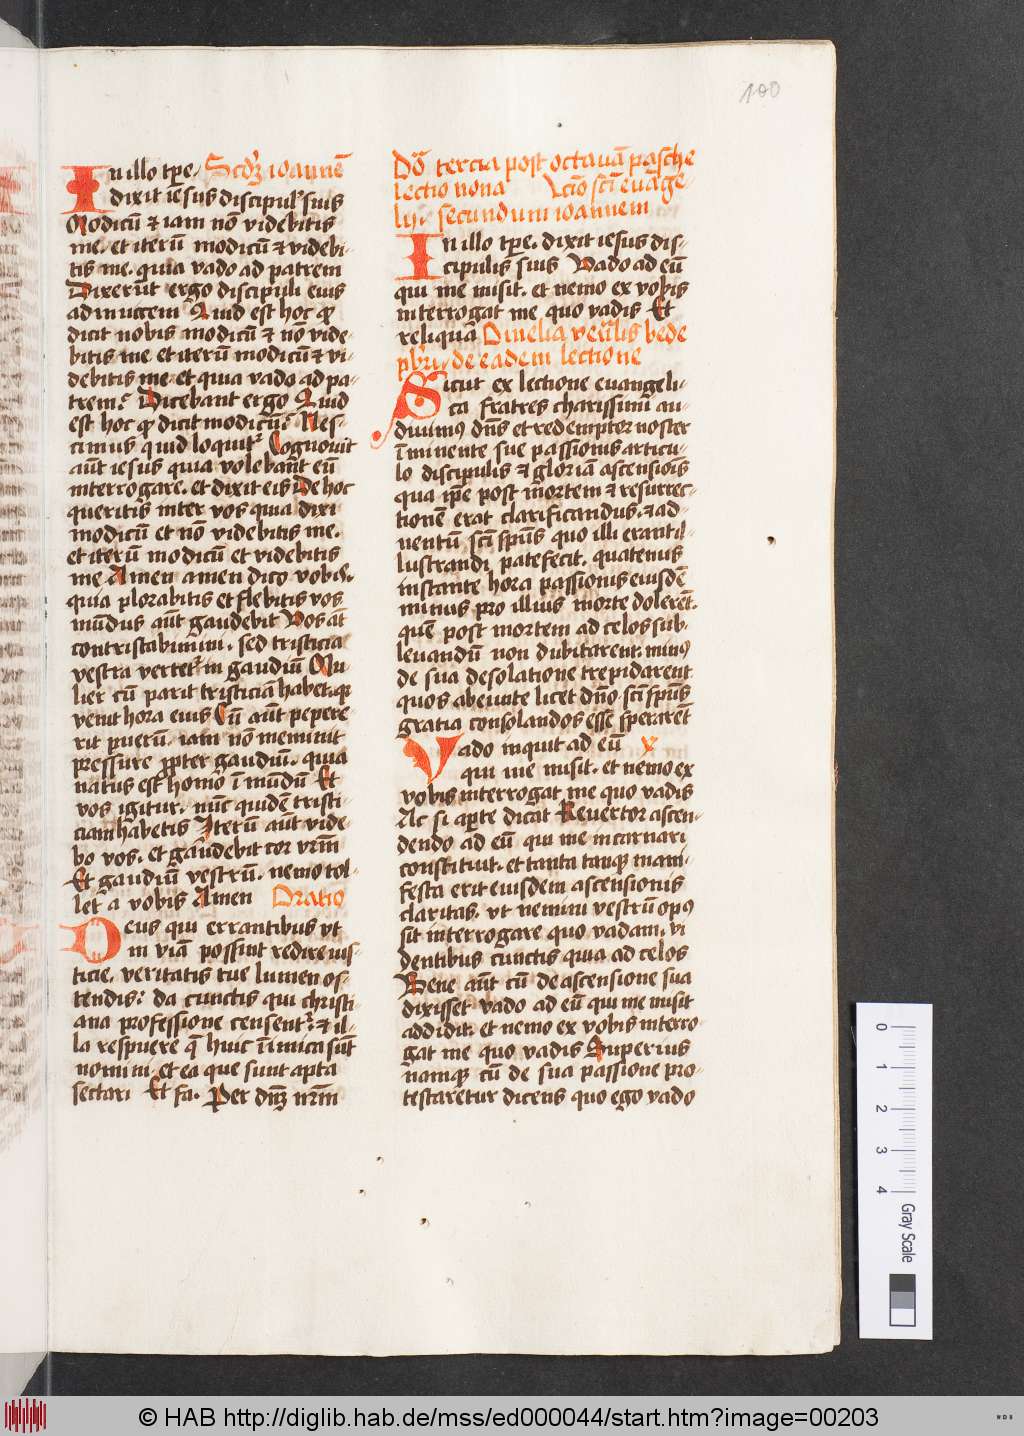 100
In illo tp̄e. Scdȝ ioannē
dixit iesus discipul' suis
Modicū & iam nō videbitis
me. et iterū modicū & videbi-
tis me. quia vado ad patrem
Dixerūt ergo discipuli eius
adinuicem Quid est hoc qd̄
dicit nobis modicū & nō vide-
bitis me et iterū modicū & vi-
debitis me. et quia vado ad pa-
trem? Dicebant ergo Quid
est hoc qd̄ dicit modicū? Nes-
cimus quid loquit᷑ Cognouit
aūt iesus quia volebant eū
interrogare. et dixit eis De hoc
queritis inter vos quia dixi
modicū et nō videbitis me.
et iterū modicū et videbitis
me Amen amen dico vobis.
quia plorabitis et flebitis vos
mūdus aūt gaudebit Vos aūt
contristabimini. sed tristicia
vestra vertet᷑ in gaudiū Mu-
lier cū parit tristiciā habet. qꝛ
venit hora eius Cū aūt pepere-
rit puerū. iam nō meminit
pressure ꝓpter gaudiū. quia
natus est homo ī mūdū Et
vos igitur. nūc quidē tristi-
ciam habetis Iterū aūt vide-
bo vos. et gaudebit cor vrm̄
Et gaudiū vestrū. nemo tol-
let a vobis Amen Oratio
Deus qui errantibus vt
in viā possint redire ius-
ticie. veritatis tue lumen os-
tendis? da cunctis qui christi-
ana professione censent᷑. & il-
la respuere q̄ huic īimica sūt
nomini. et ea que sunt apta
sectari Et fa. Per dn̄ȝ nrm̄
Dō tercia post octauā pasche
lectio nona Lcīo scī euāge-
lij. secundum ioannem
In illo tp̄e. dixit iesus dis-
cipulis suis Vado ad eū
qui me misit. et nemo ex vobis
interrogat me quo vadis Et
reliqua Omelia ven̄lis bede
pbr̄i. de eadem lectione
Sicut ex lectione euangeli-
ca fratres charissimi au-
diuimꝰ dn̄s et redemptor noster
īminente sue passionis articu-
lo discipulis & gloriā ascensiōis
qua ip̄e post mortem & resurrec-
tionē erat clarificandus. & ad-
uentū scī sp̄us quo illi erant il-
lustrandi patefecit. quatenus
instante hora passionis eiusdē
minus pro illius morte dolerēt.
quē post mortem ad celos sub-
leuandū non dubitarent. minꝰ
de sua desolatione trepidarent
quos abeunte licet dn̄o scī sp̄us
gratia consolandos esse sperarēt
Vado inquit ad eū x
qui me misit. et nemo ex
vobis interrogat me quo vadis
Ac si aperte dicat Reuertor ascen-
dendo ad eū qui me incarnari
constituit. et tanta tamqꝫ mani-
festa erit eiusdem ascensionis
claritas. vt nemini vestrū opꝰ
sit interrogare quo vadam. vi-
dentibus cunctis quia ad celos
Bene aūt cū de ascensione sua
dixisset vado ad eū qui me misit
addidit. et nemo ex vobis interro-
gat me quo vadis Superius
namqꝫ cū de sua passione pro-
testaretur dicens quo ego vado
0 1 2 3 4 Gray Scale
© HAB http://diglib.hab.de/mss/ed000044/start.htm?image=00203